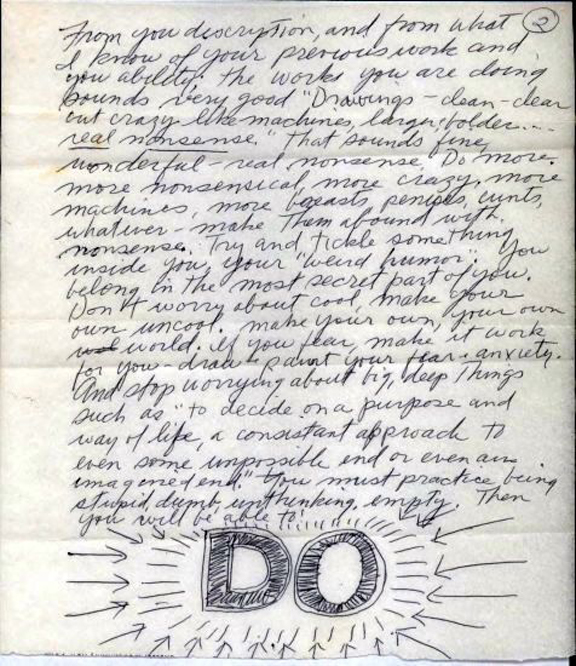 From you description, and from what
2
I know of your previous work and
you ability; the works you are doing
sounds very good "Drawings - clean - clear
but crazy like machines, larger, bolder....
real nonsense." That sounds fine,
wonderful - real nonsense. Do more.
more nonsensical, more crazy, more
machines, more breasts, penises, cunts,
whatever - make them abound with
nonsense. Try and tickle something
inside you, your "weird humor". You
belong in the most secret part of you.
Don't worry about cool, make your
own uncool. make your own, your own
world. If you fear, make it work
for you - draw & paint your fear & anxiety.
And stop worrying about big, deep things
such as "to decide on a purpose and
way of life, a consistant approach to
even some impossible end or even an
imagined end." You must practice being
stupid, dumb, unthinking, empty. Then
you will be able to:
DO